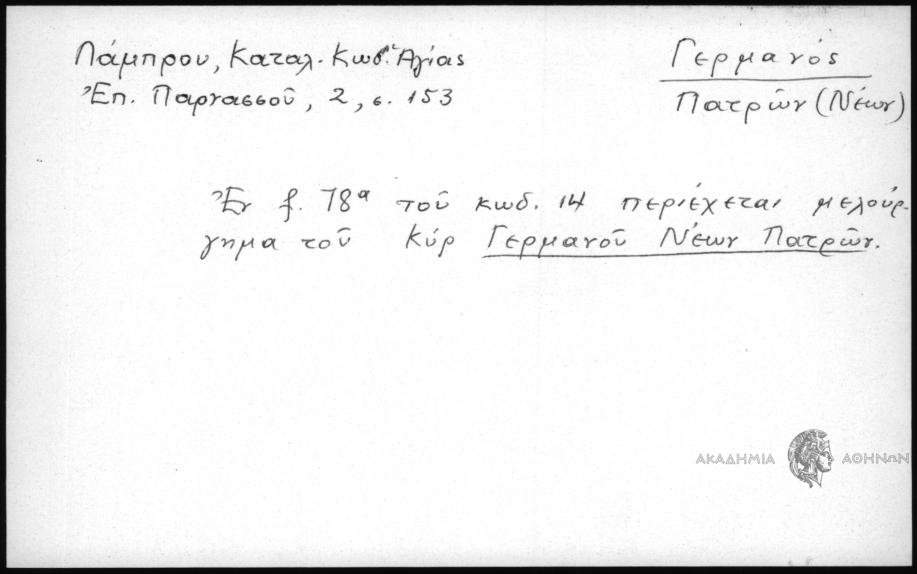 Λάμπρου, Καταλ. Κωδ. Ἁγίας
Ἐπ. Παρνασσοῦ, 2, σ. 153
Γερμανός
Πατρῶν (Νέων)
Ἐν f. 78α τοῦ κωδ. 14 περιέχεται μελούρ-
γημα τοῦ Κύρ Γερμανοῦ Νέων Πατρῶν.
ΑΚΑΔΗΜΙΑ ΑΘΗΝΩΝ